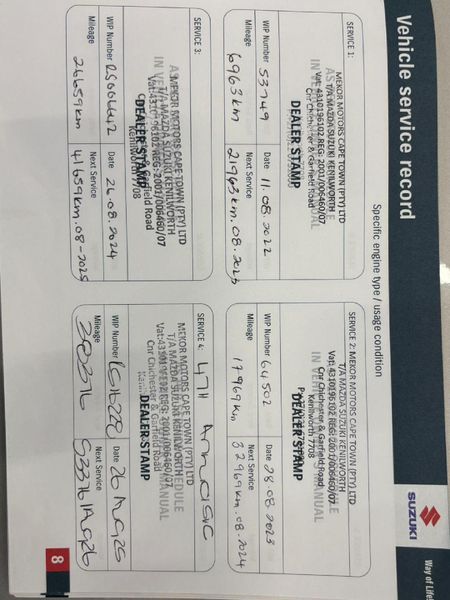 Vehicle service record
SUZUKI
Way of Life!
Specific engine type / usage condition
SERVICE 1:
MEKOR MOTORS CAPE TOWN (PTY) LTD
T/A MAZDA SUZUKI KENILWORTH
Vat: 4310196102 REG: 2001/006460/07
Cnr Chichester & Garfield Road
DEALER STAMP
WIP Number 53749 Date 11.08.2022
Mileage Next Service
6963km 21963km.08.2023
SERVICE 2: MEKOR MOTORS CAPE TOWN (PTY) LTD
T/A MAZDA SUZUKI KENILWORTH
Vat: 4310196102 REG: 2001/006460/07
Cnr Chichester & Garfield Road
Kenilworth 7708
DEALER STAMP
WIP Number 64502 Date 28.08.2023
Mileage Next Service
17969km 32969km.08.2024
SERVICE 3:
MEKOR MOTORS CAPE TOWN (PTY) LTD
T/A MAZDA SUZUKI KENILWORTH
Vat: 4310196102 REG: 2001/006460/07
Cnr Chichester & Garfield Road
Kenilworth 7708
DEALER STAMP
WIP Number Date 26.08.2024
Mileage Next Service
26659km 41659km.08-2025
SERVICE 4:
MEKOR MOTORS CAPE TOWN (PTY) LTD
T/A MAZDA SUZUKI KENILWORTH
Vat:4310196102 REG: 2001/006460/07
Cnr Chichester & Garfield Road
DEALER STAMP
WIP Number Date
Mileage Next Service
8